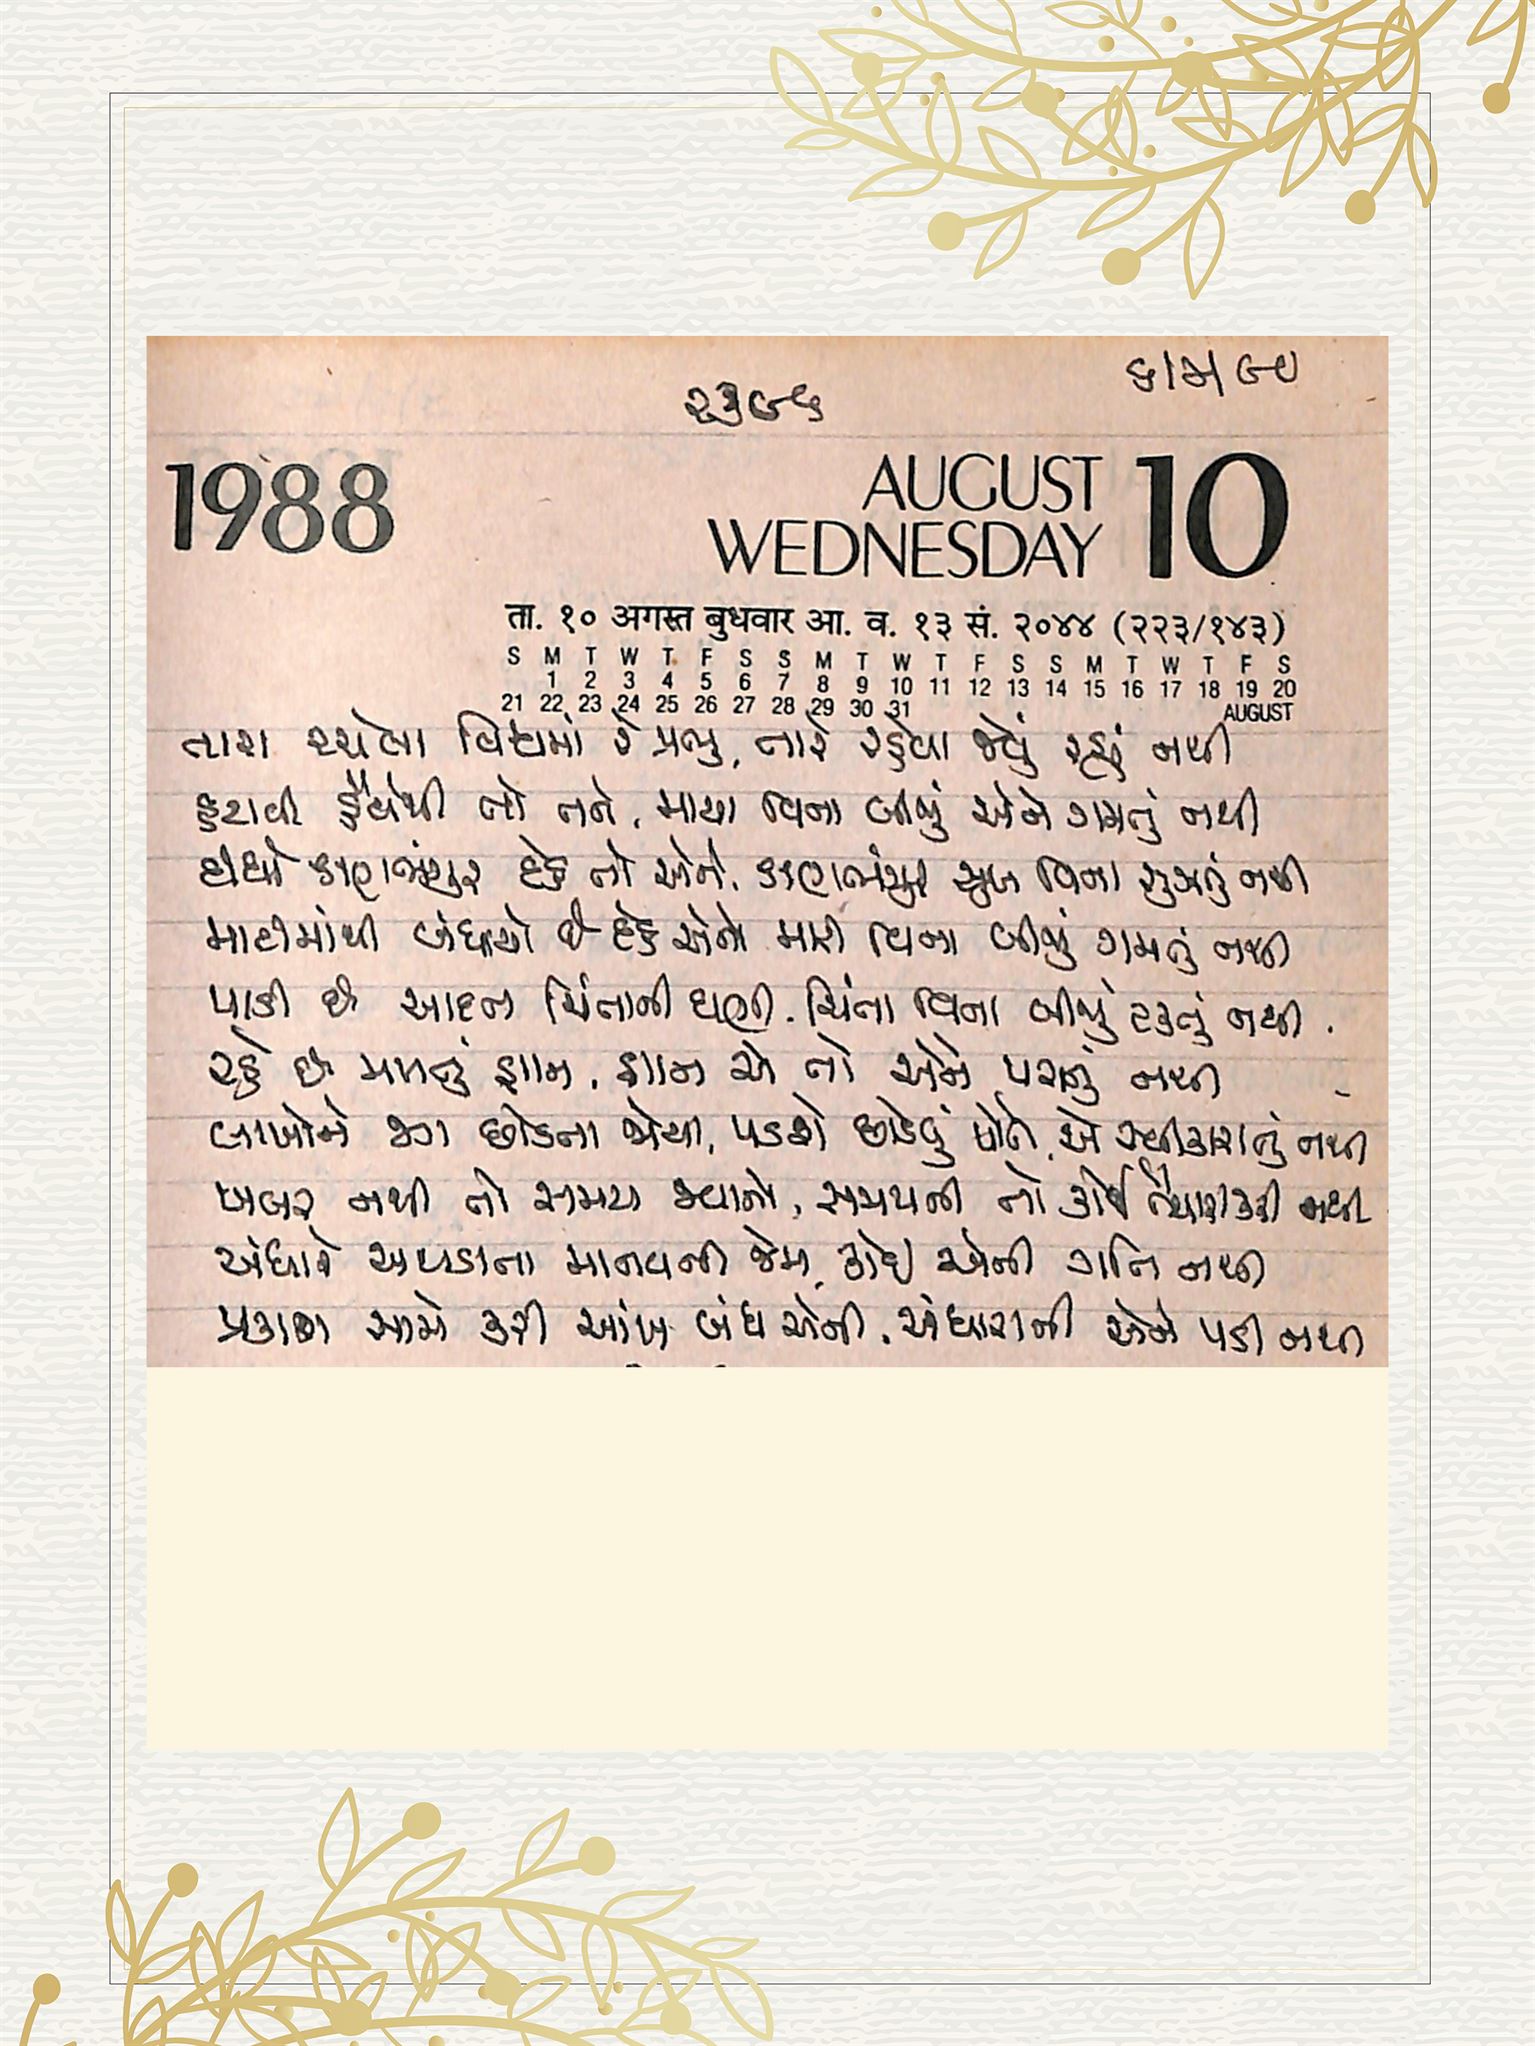 ૨૩૯૬
1988
AUGUST 10
WEDNESDAY
ता. १० अगस्त बुधवार आ. व. १३ सं. २०४४ (२२३/१४३)
S M T W T F S S M T W T F S S M T W T F S
1 2 3 4 5 6 7 8 9 10 11 12 13 14 15 16 17 18 19 20
21 22 23 24 25 26 27 28 29 30 31 AUGUST
તારા રચેલા વિશ્વમાં રે પ્રભુ, તારે રહેવા જેવું રહ્યું નથી
હટાવી હૈયેથી તો તને, માયા વિના બીજું એને ગમતું નથી
દીધો ક્ષણભંગુર દેહ તો એને, ક્ષણભંગુર સુખ વિના સુઝતું નથી
માટીમાંથી બંધાયો છે દેહ એનો માટી વિના બીજું ગમતું નથી
પાડી છે આદત ચિંતાની ઘણી. ચિંતા વિના બીજું ટકતું નથી.
રહે છે મળતું જ્ઞાન, જ્ઞાન એ તો એને પચતું નથી
લાખોને જગ છોડતા જોયા, પડશે છોડવું પોતે, એ સ્વીકારાતું નથી
ખબર નથી તો સમય જવાનો, સમયની તો કોઈ તૈયારી કરી નથી
અંધારે અથડાતા માનવની જેમ, કોઈ એની ગતિ નથી
પ્રકાશ સામે કરી આંખ બંધ એની, અંધારાની એને પડી નથી